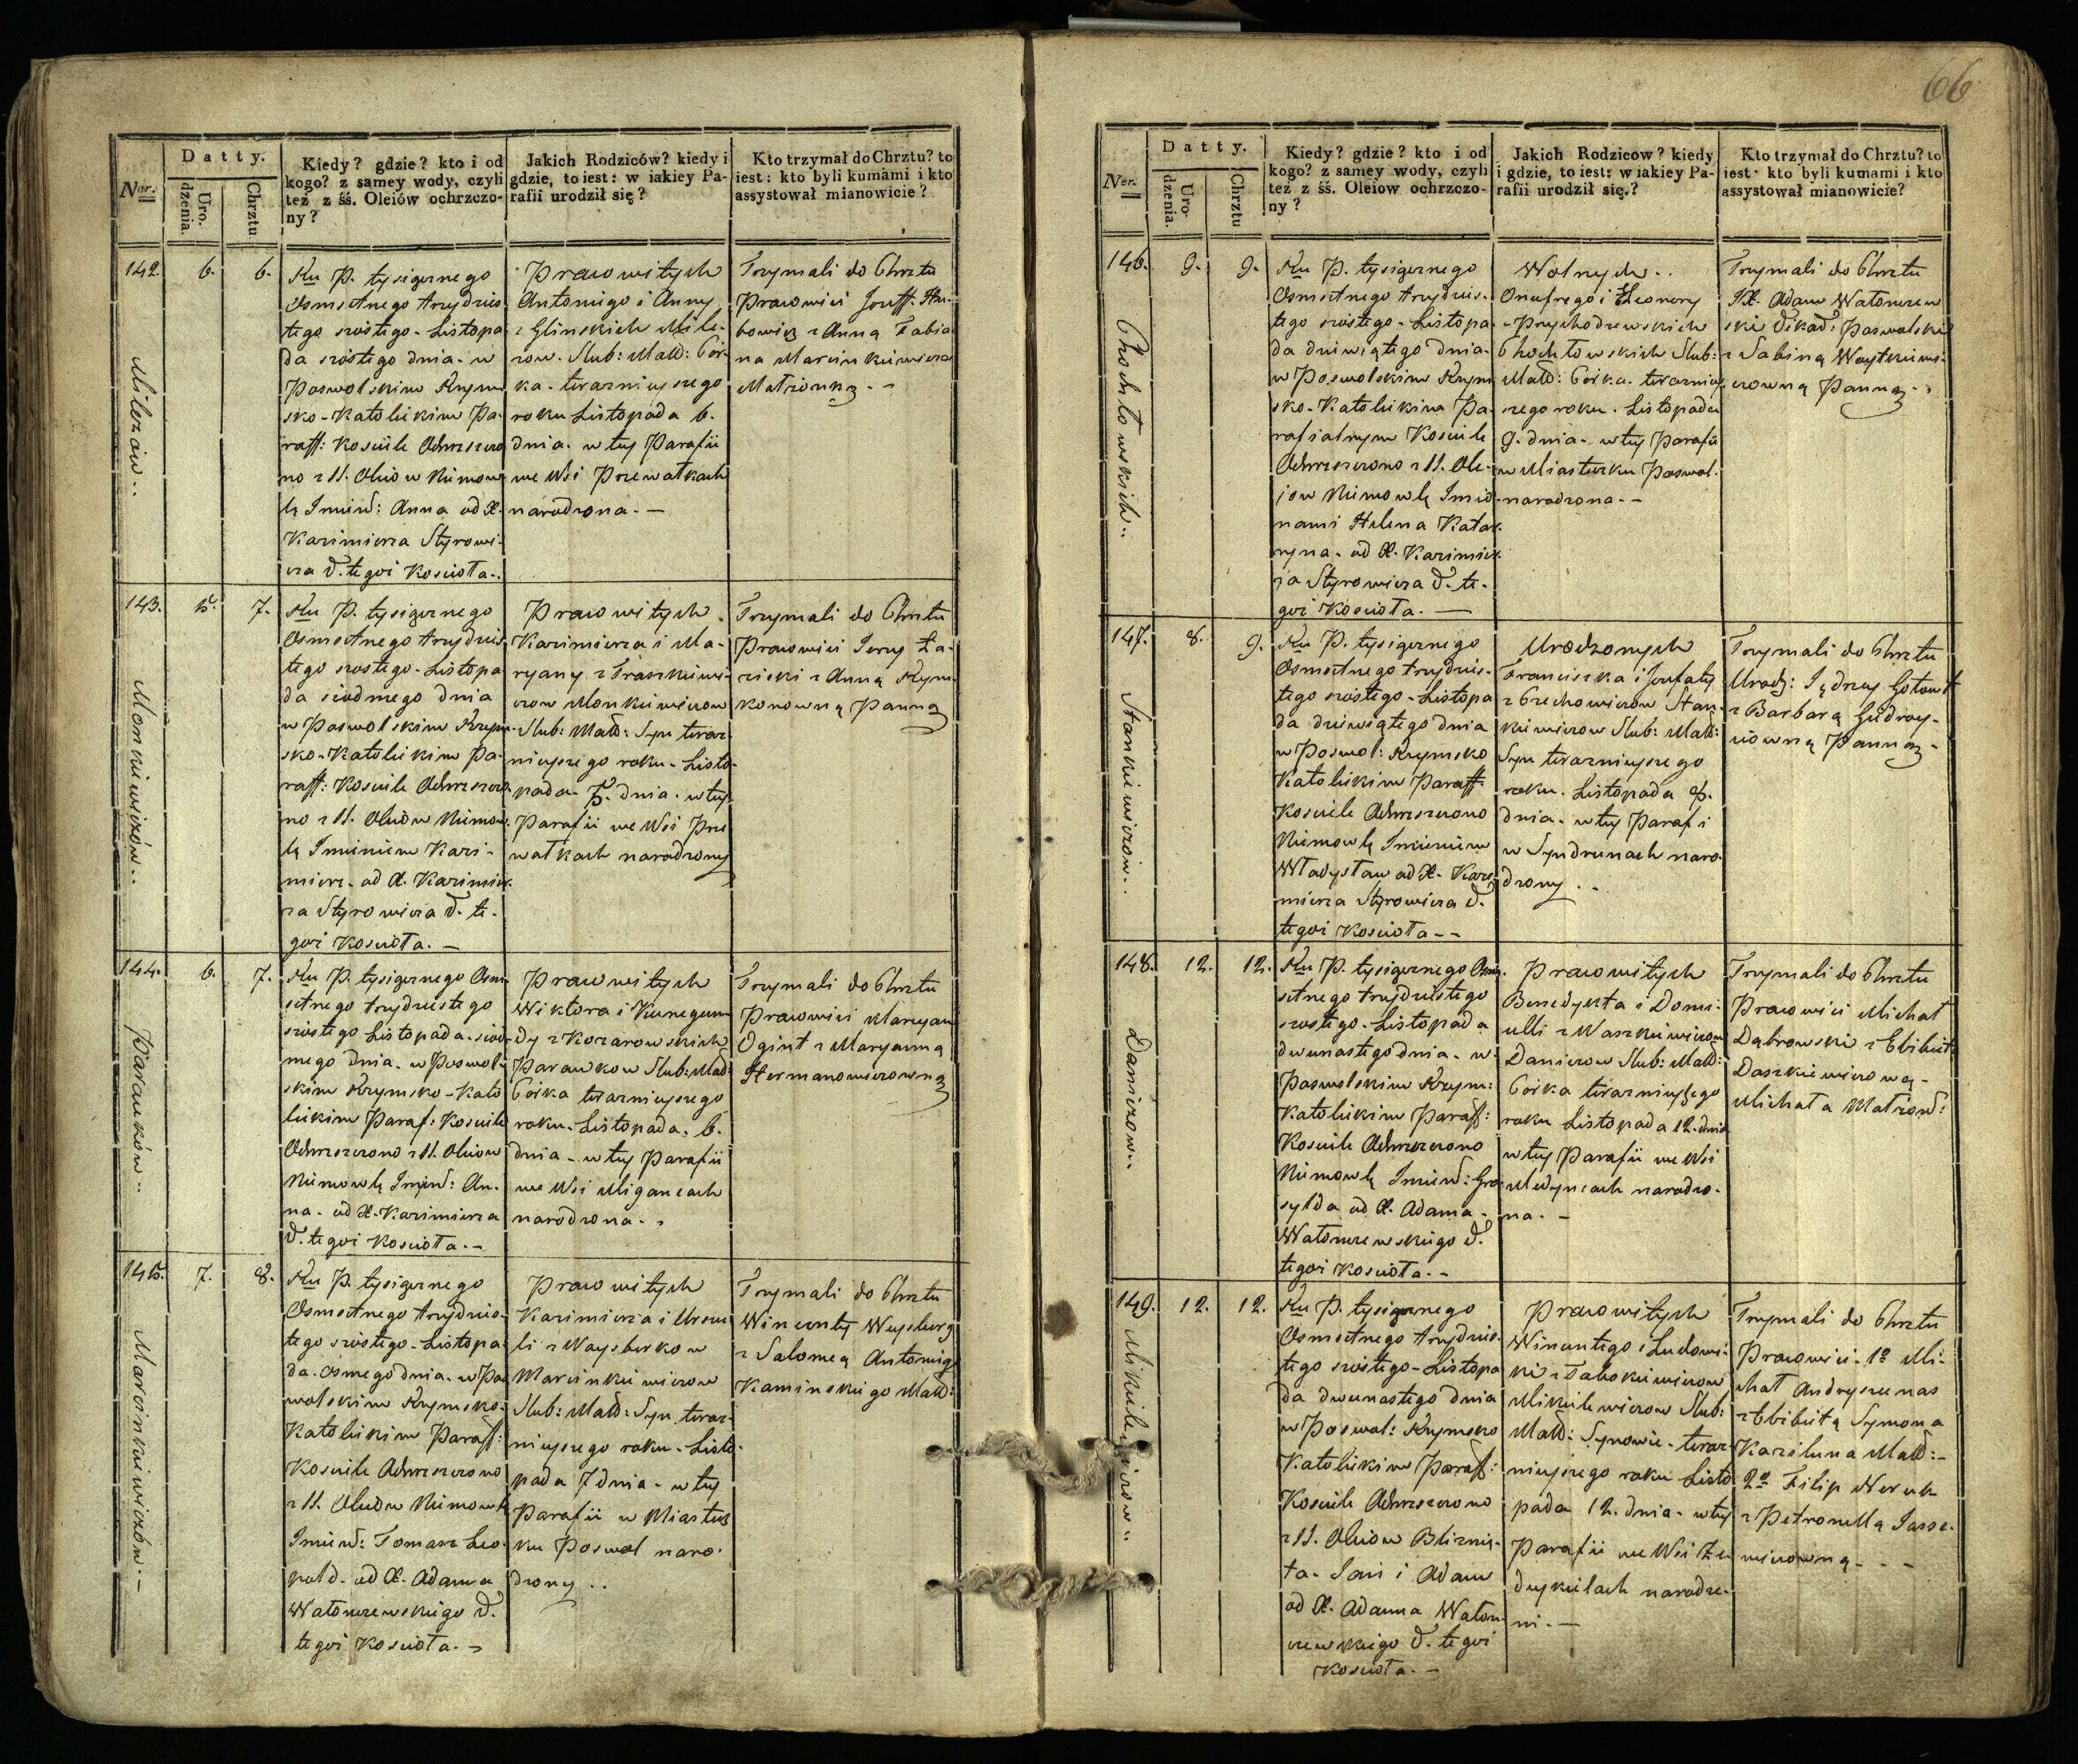 66
Ner.
Datty.
Uro-
dzenia.
Chrztu
Kiedy? gdzie? kto i od
kogo? z samey wody, czyli
też z śś. Oleiów ochrzczo-
ny?
Jakich Rodziców? kiedy i
gdzie, to iest: w iakiey Pa-
rafii urodził się?
Kto trzymał do Chrztu? to
iest: kto byli kumami i kto
assystował mianowicie?
142. 6. 6.
Milczów..
Ku P. tysiącznego
Osmsetnego trzydzies
tego szóstego - Listopa
da szóstego dnia - w
Poswolskim Rzym
sko-Katolickim Pa-
raff: Kosciele Ochrzczo
no z SS. Oleiów Niemow
lę Imień: Anna od X.
Kazimierza Styrowi-
cza W. tegoż Koscioła..
Prawowitych
Antoniego i Anny
z Glinskich Mile-
zow. Slub: Małż: Cór-
ka - teraznieyszego
roku Listopada 6.
dnia - w tey Parafii
we Wsi Przewałkach
narodzona. -
Trzymali do Chrztu
Prawowici Jozeff
z Anną Fabia
na Marcinkiewicza
Małżonką. -
143. 5. 7.
Monkiewiczów..
Ku P. tysiącznego
Osmsetnego trzydzies
tego szostego - Listopa
da siodmego dnia
w Poswolskim Rzym
sko-Katolickim Pa-
raff: Kosciele Ochrzczo
no z SS. Oleiów Niemow
lę Imieniem Kazi-
mierz - od X. Kazimier
za Styrowicza W. te-
goż Koscioła. -
Prawowitych
Kazimierza i Ma-
ryany z Traszkiewi-
czow Monkiewiczow
Slub: Małż: Syn teraz
nieyszego roku - Listo-
pada 5. dnia - w tey
Parafii we Wsi Prze
wałkach narodzony
Trzymali do Chrztu
Prawowici Jerzy Ła-
zicki z Anną Szym-
konowną Panną
144. 6. 7.
Parauków..
Ku P. tysiącznego Osm
setnego trzydziestego
szóstego Listopada - siod
mego dnia - w Poswol-
skim Rzymsko-Kato
lickim Paraf: Kosciele
Ochrzczono z SS. Oleiow
Niemowlę Imień: An-
na - od X. Kazimierza
W. tegoż Koscioła. -
Prawowitych
Wiktora i Kunegun
dy z Kozarowskich
Paraukow Slub: Małż
Córka teraznieyszego
roku - Listopada. 6.
dnia - w tey Parafii
we Wsi Migancach
narodzona. -
Trzymali do Chrztu
Prawowici Maryan
Ogint z Maryanną
Hermanowiczowną
145. 7. 8.
Marcinkiewiczów..-
Ku P. tysiącznego
Osmsetnego trzydzies-
tego szóstego - Listopa
da - osmego dnia - w Pos
wolskim Rzymsko-
Katolickim Paraff:
Kosciele Ochrzczono
z SS. Oleiow Niemowlę
Imień: Tomasz Leo-
pold - od X. Adama
Watonczewskiego W.
tegoż Koscioła. -
Prawowitych
Kazimierza i Urszu
li z Waysberkow
Marcinkiewiczow
Slub: Małż: Syn teraz-
nieyszego roku - Listo-
pada 7 dnia - w tey
Parafii w Miastecz
ku Poswol naro-
dzony..
Trzymali do Chrztu
Wincenty Weysberg
z Salomeą Antoniego
Kaminskiego Małż:
Ner.
Datty.
Uro-
dzenia.
Chrztu
Kiedy? gdzie? kto i od
kogo? z samey wody, czyli
też z śś. Oleiow ochrzczo-
ny?
Jakich Rodziców? kiedy
i gdzie, to iest: w iakiey Pa-
rafii urodził się?
Kto trzymał do Chrztu? to
iest: kto byli kumami i kto
assystował mianowicie?
146. 9. 9.
Chochłowskich..
Ku P. tysiącznego
Osmsetnego trzydzies-
tego szóstego - Listopa-
da dziewiątego dnia -
w Poswolskim Rzym
sko-Katolickim Pa-
rafialnym Kosciele
Ochrzczono z SS. Ole-
iow Niemowlę Imio-
nami Helena Kata-
rzyna - od X. Kazimier
za Styrowicza W. te-
goż Koscioła. -
Wolnych..
Onufrego i Eleonory
z Przychodzewskich
Chochłowskich Slub:
Małż: Córka - teraznie
szego roku - Listopada
9. dnia - w tey Parafii
w Miasteczku Poswol
narodzona. -
Trzymali do Chrztu
JX. Adam Watonczew
ski Wikar: Poswolski
z Sabiną Woytkiewi-
czowną Panną..
147. 8. 9.
Stankiewiczów..
Ku P. tysiącznego
Osmsetnego trzydzies-
tego szóstego - Listopa
da dziewiątego dnia
w Poswol: Rzymsko
Katolickim Paraff.
Kosciele Ochrzczono
Niemowlę Imieniem
Władysław od X. Kazi-
mierza Styrowicza W.
tegoż Koscioła - -
Urodzonych
Franciszka i Jozefaty
z Grechowiczów Stan-
kiewiczow Slub: Małż:
Syn teraznieyszego
roku - Listopada 8.
dnia - w tey Parafi
w Syndrunach naro-
dzony..
Trzymali do Chrztu
Urodz: Jędrzey Gotowt
z Barbarą Giedroy-
ciowną Panną -
148. 12. 12.
Daniczow..
Ku P. tysiącznego Osm
setnego trzydziestego
szóstego - Listopada
dwunastego dnia - w
Poswolskim Rzym:
Katolickim Paraff:
Kosciele Ochrzczono
Niemowlę Imień: Gra-
sylda od X. Adama
Watonczewskiego W.
tegoż Koscioła. -
Prawowitych
Benedykta i Domi-
celli z Waszkiewiczow
Daniczow Slub: Małż:
Córka teraznieyszego
roku Listopada 12. dnia
w tey Parafii we Wsi
Medyncach narodzo-
na. -
Trzymali do Chrztu
Prawowici Michał
Dąbrowski z Elżbietą
Daszkiewiczową -
Michała Małżon:
149. 12. 12.
Mikulewiczow..
Ku P. tysiącznego
Osmsetnego trzydzies-
tego szóstego - Listopa
da dwunastego dnia
w Poswol: Rzymsko
Katolickim Paraff:
Kosciele Ochrzczono
z SS. Oleiow Bliznię-
ta - Jan i Adam
od X. Adama Waton-
czewskiego W. tegoż
Koscioła. -
Prawowitych
Wincentego i Ludowi-
ki z Fabskiewiczow
Mikulewiczow Slub:
Małż: Synowie - teraz
nieyszego roku Listo
pada 12. dnia - w tey
Parafii we Wsi Że-
deykielach narodze-
ni. -
Trzymali do Chrztu
Prawowici - 1o Mi-
chał Andryszunas
z Elżbietą Symona
Kazeluna Małż: -
2o Filip
z Petronellą
wiczowną - - -